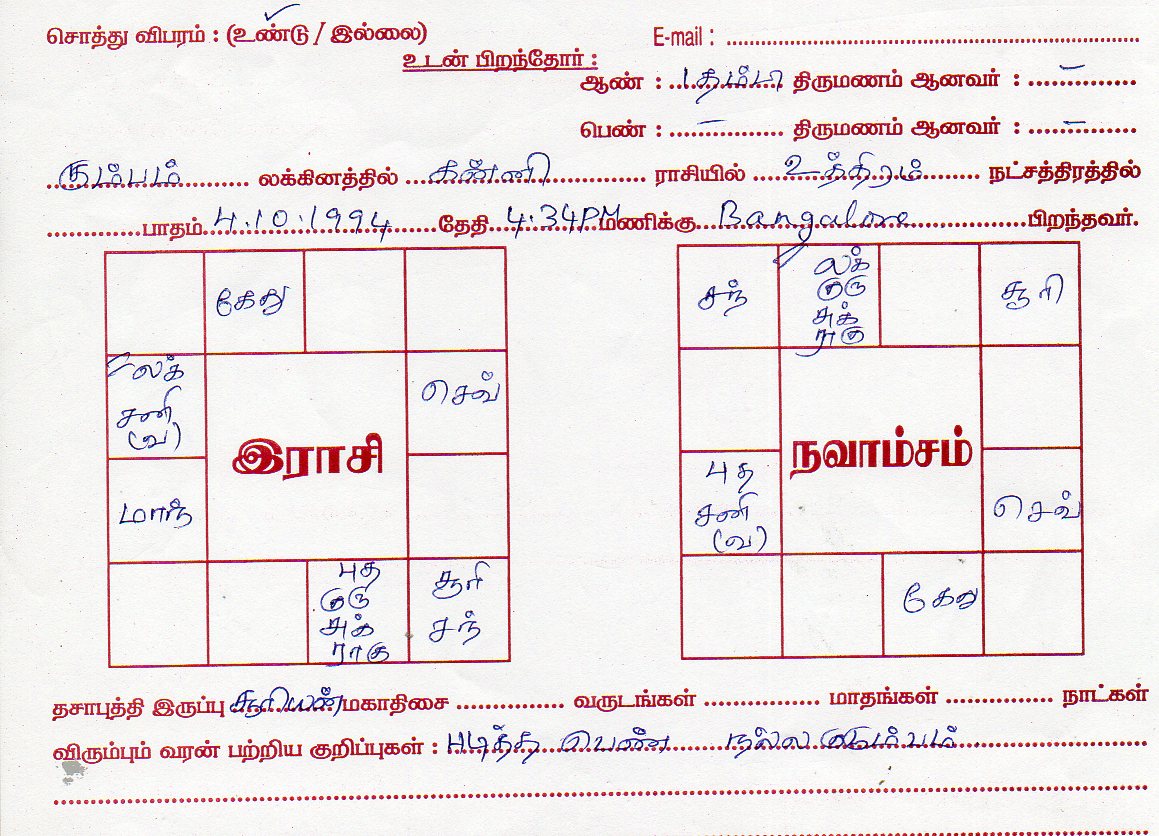 சொத்து விபரம் : (உண்டு / இல்லை)
E-mail : ........................
உடன் பிறந்தோர் :
ஆண் : 1 தம்பி திருமணம் ஆனவர் : –
பெண் : – திருமணம் ஆனவர் : –
கும்பம் லக்கினத்தில் கன்னி ராசியில் உத்திரம் நட்சத்திரத்தில்
பாதம் 4.10.1994 தேதி 4:34PM மணிக்கு Bangalore பிறந்தவர்.
கேது
லக்
சனி
(வ)
செவ்
இராசி
மாந்
புத
குரு
சுக்
ராகு
சூரி
சந்
சந்
லக்
குரு
சுக்
ராகு
சூரி
நவாம்சம்
புத
சனி
(வ)
செவ்
கேது
தசாபுத்தி இருப்பு சூரியன் மகாதிசை ............ வருடங்கள் ............ மாதங்கள் ............ நாட்கள்
விரும்பும் வரன் பற்றிய குறிப்புகள் : படித்த பெண் நல்ல குடும்பம்